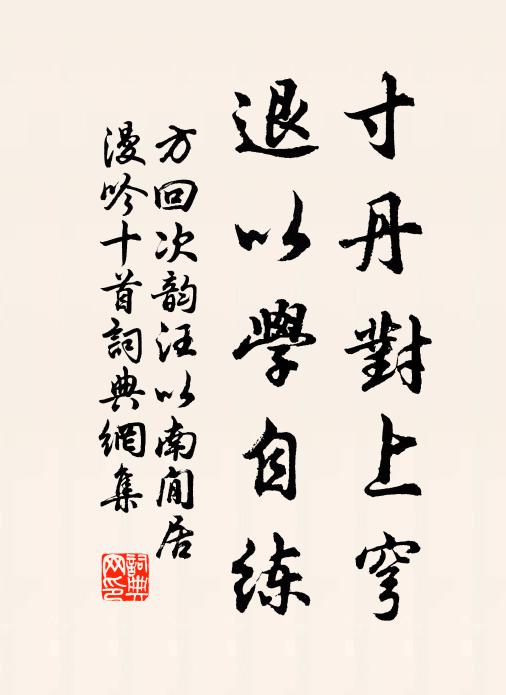 寸丹對上穹
退以學自練
方回次韵汪以南閒居
漫吟十首詞典網集
詞典网印